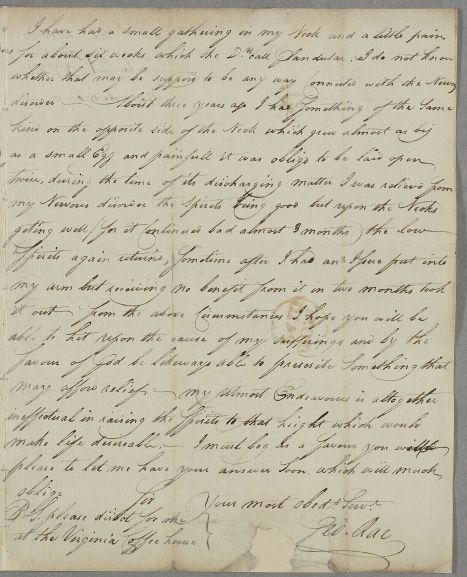 I have had a small gathering in my Neck and a little pain
for about six weeks which the Drs call Glandular, I do not know
whether that may be suppos'd to be any way connected with the Nervous
disorder — about three years ago I had something of the same
kind on the opposite side of the Neck which grew almost as big
as a small Egg and painfull it was oblig'd to be laid open
twice, during the time of its discharging matter I was reliev'd from
my Nervous disorder the Spirits being good but upon the Necks
geting well (for it continued bad almost 3 months) the low
Spirits again return'd, Sometime after I had an Issue put into
my arm but receiving no benefit from it in two months took
it out — from the above Circumstances I hope you will be
able to hit upon the cause of my sufferings and by the
favour of God be likeways able to prescribe something that
may afford relief — my utmost Endeavours is altogether
ineffectual in raising the Spirits to that height which would
make life desireable — I must beg as a favour you will
please to let me have your answer soon which will much
oblige Sir Your most obedt Servt
P.S. please direct for me Geo. Rae
at the Virginia Coffee house